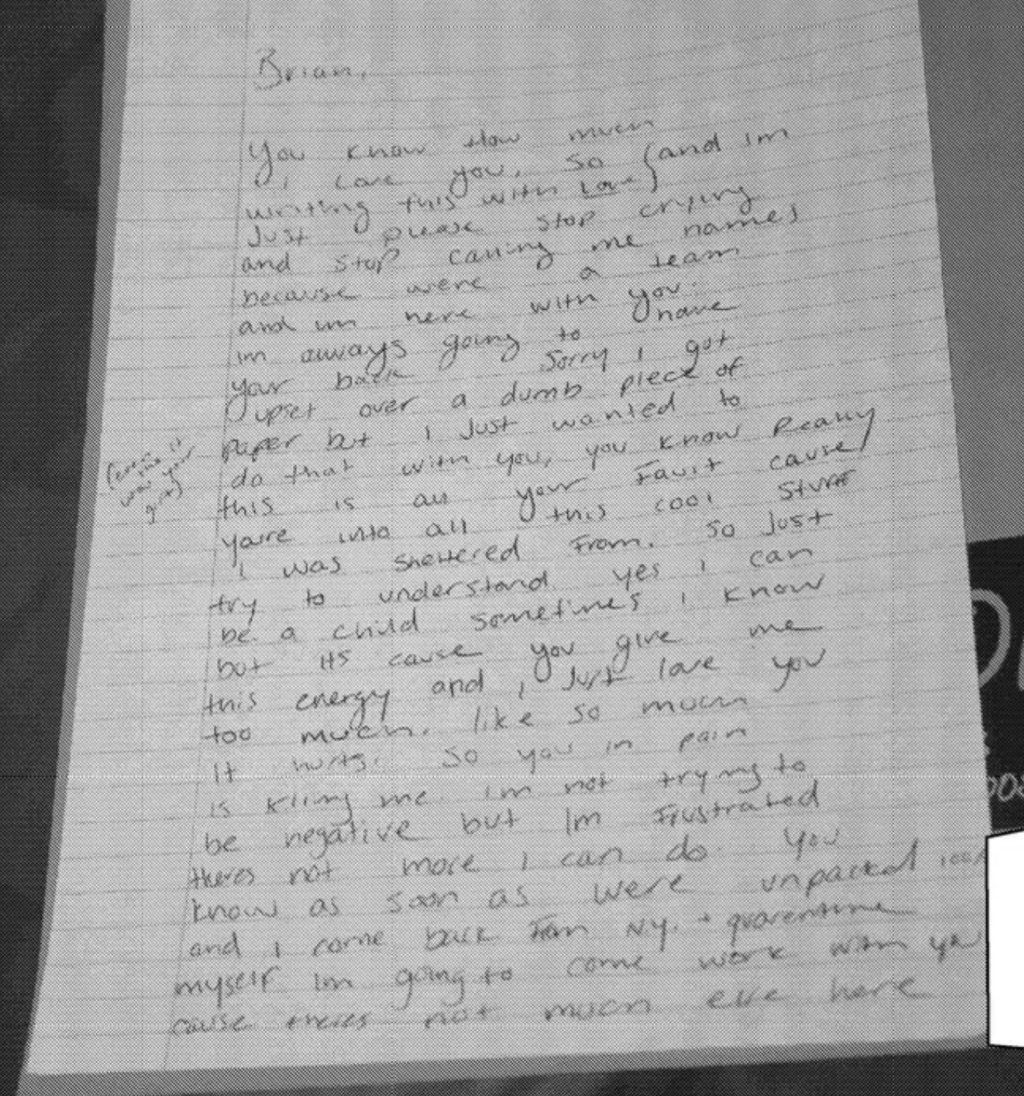 Brian,
You know How much
I Love you, so (and im
writing this with Love)
Just please stop crying
and stop calling me names
because were a team
and im here with you.
im always going to have
your back Sorry I got
upset over a dumb piece of
paper but I Just wanted to
do that with you, you know Really
this is all your Fault cause
youre into all this cool stuff
I was sheltered From. So Just
try to understand yes I can
be a child sometimes I know
but its cause you give me
this energy and I Just love you
too much, like so much
It hurts. So you in pain
is killing me. im not trying to
be negative but Im Frustrated
theres not more I can do. You
know as soon as were unpacked
and I come back From N.Y. + quarentine
myself im going to come work with you
cause theres not much else here